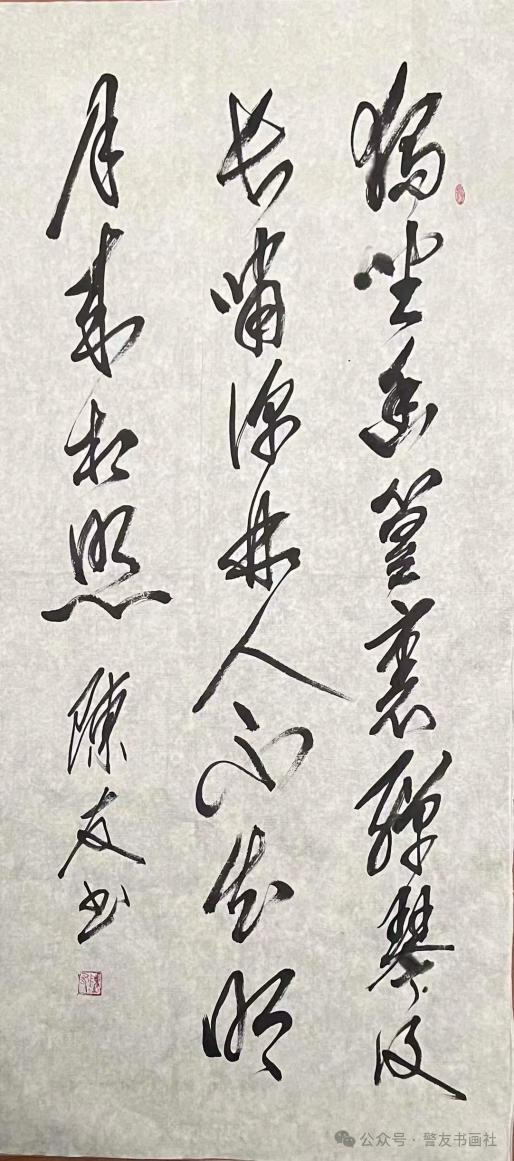 獨坐幽篁裏彈琴復
長嘯深林人不知明
月来相照 陳友书
公众号·警友书画社